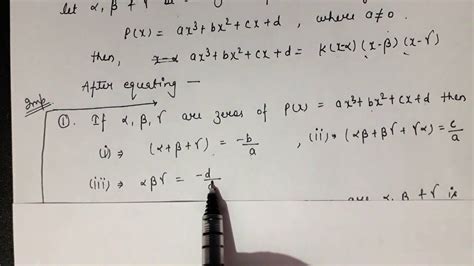 let α, β + γ
P(x) = ax³ + bx² + cx + d , where a ≠ 0.
then, x-α ax³ + bx² + cx + d = K(x-α) (x-β) (x-γ)
After equating —
Imp
①. If α, β, γ are zeros of P(x) = ax³ + bx² + cx + d then
(i) ⇒ (α + β + γ) = -b/a , (ii) ⇒ (αβ + βγ + γα) = c/a
(iii) ⇒ αβγ = -d/
are α, β + γ is